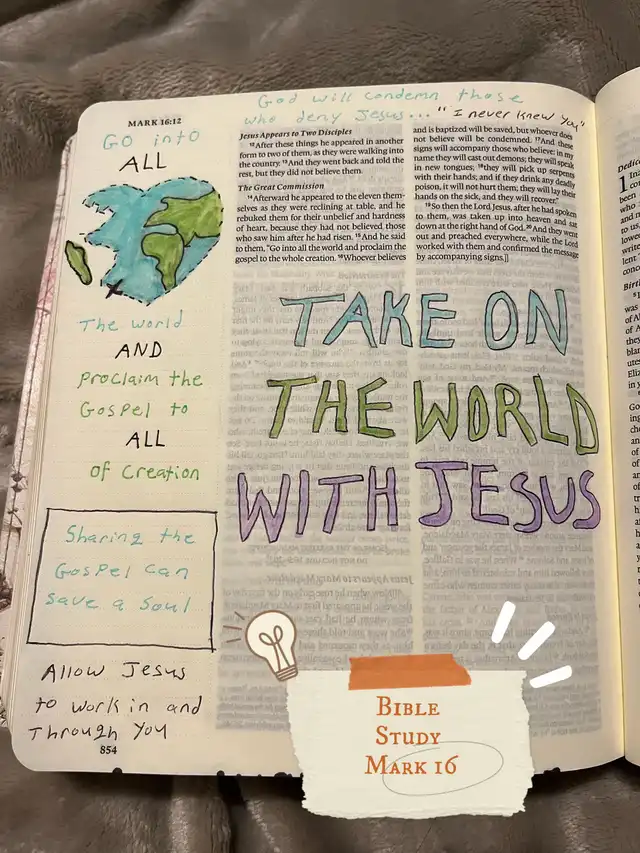 God will condemn those
who deny Jesus... "I never knew you"
MARK 16:12
Go into
ALL
The World
AND
Proclaim the
Gospel to
ALL
of Creation
Sharing the
Gospel can
save a soul
Allow Jesus
to work in and
Through You
854
Jesus Appears to Two Disciples
12After these things he appeared in another
form to two of them, as they were walking into
the country. 13And they went back and told the
rest, but they did not believe them.
The Great Commission
14Afterward he appeared to the eleven them-
selves as they were reclining at table, and he
rebuked them for their unbelief and hardness
of heart, because they had not believed those
who saw him after he had risen. 15And he said
to them, "Go into all the world and proclaim the
gospel to the whole creation. 16Whoever believes
and is baptized will be saved, but whoever does
not believe will be condemned. 17And these
signs will accompany those who believe: in my
name they will cast out demons; they will speak
in new tongues; 18they will pick up serpents
with their hands; and if they drink any deadly
poison, it will not hurt them; they will lay their
hands on the sick, and they will recover."
19So then the Lord Jesus, after he had spoken
to them, was taken up into heaven and sat
down at the right hand of God. 20And they went
out and preached everywhere, while the Lord
worked with them and confirmed the message
by accompanying signs.]]
TAKE ON
THE WORLD
WITH JESUS
Bible
Study
Mark 16